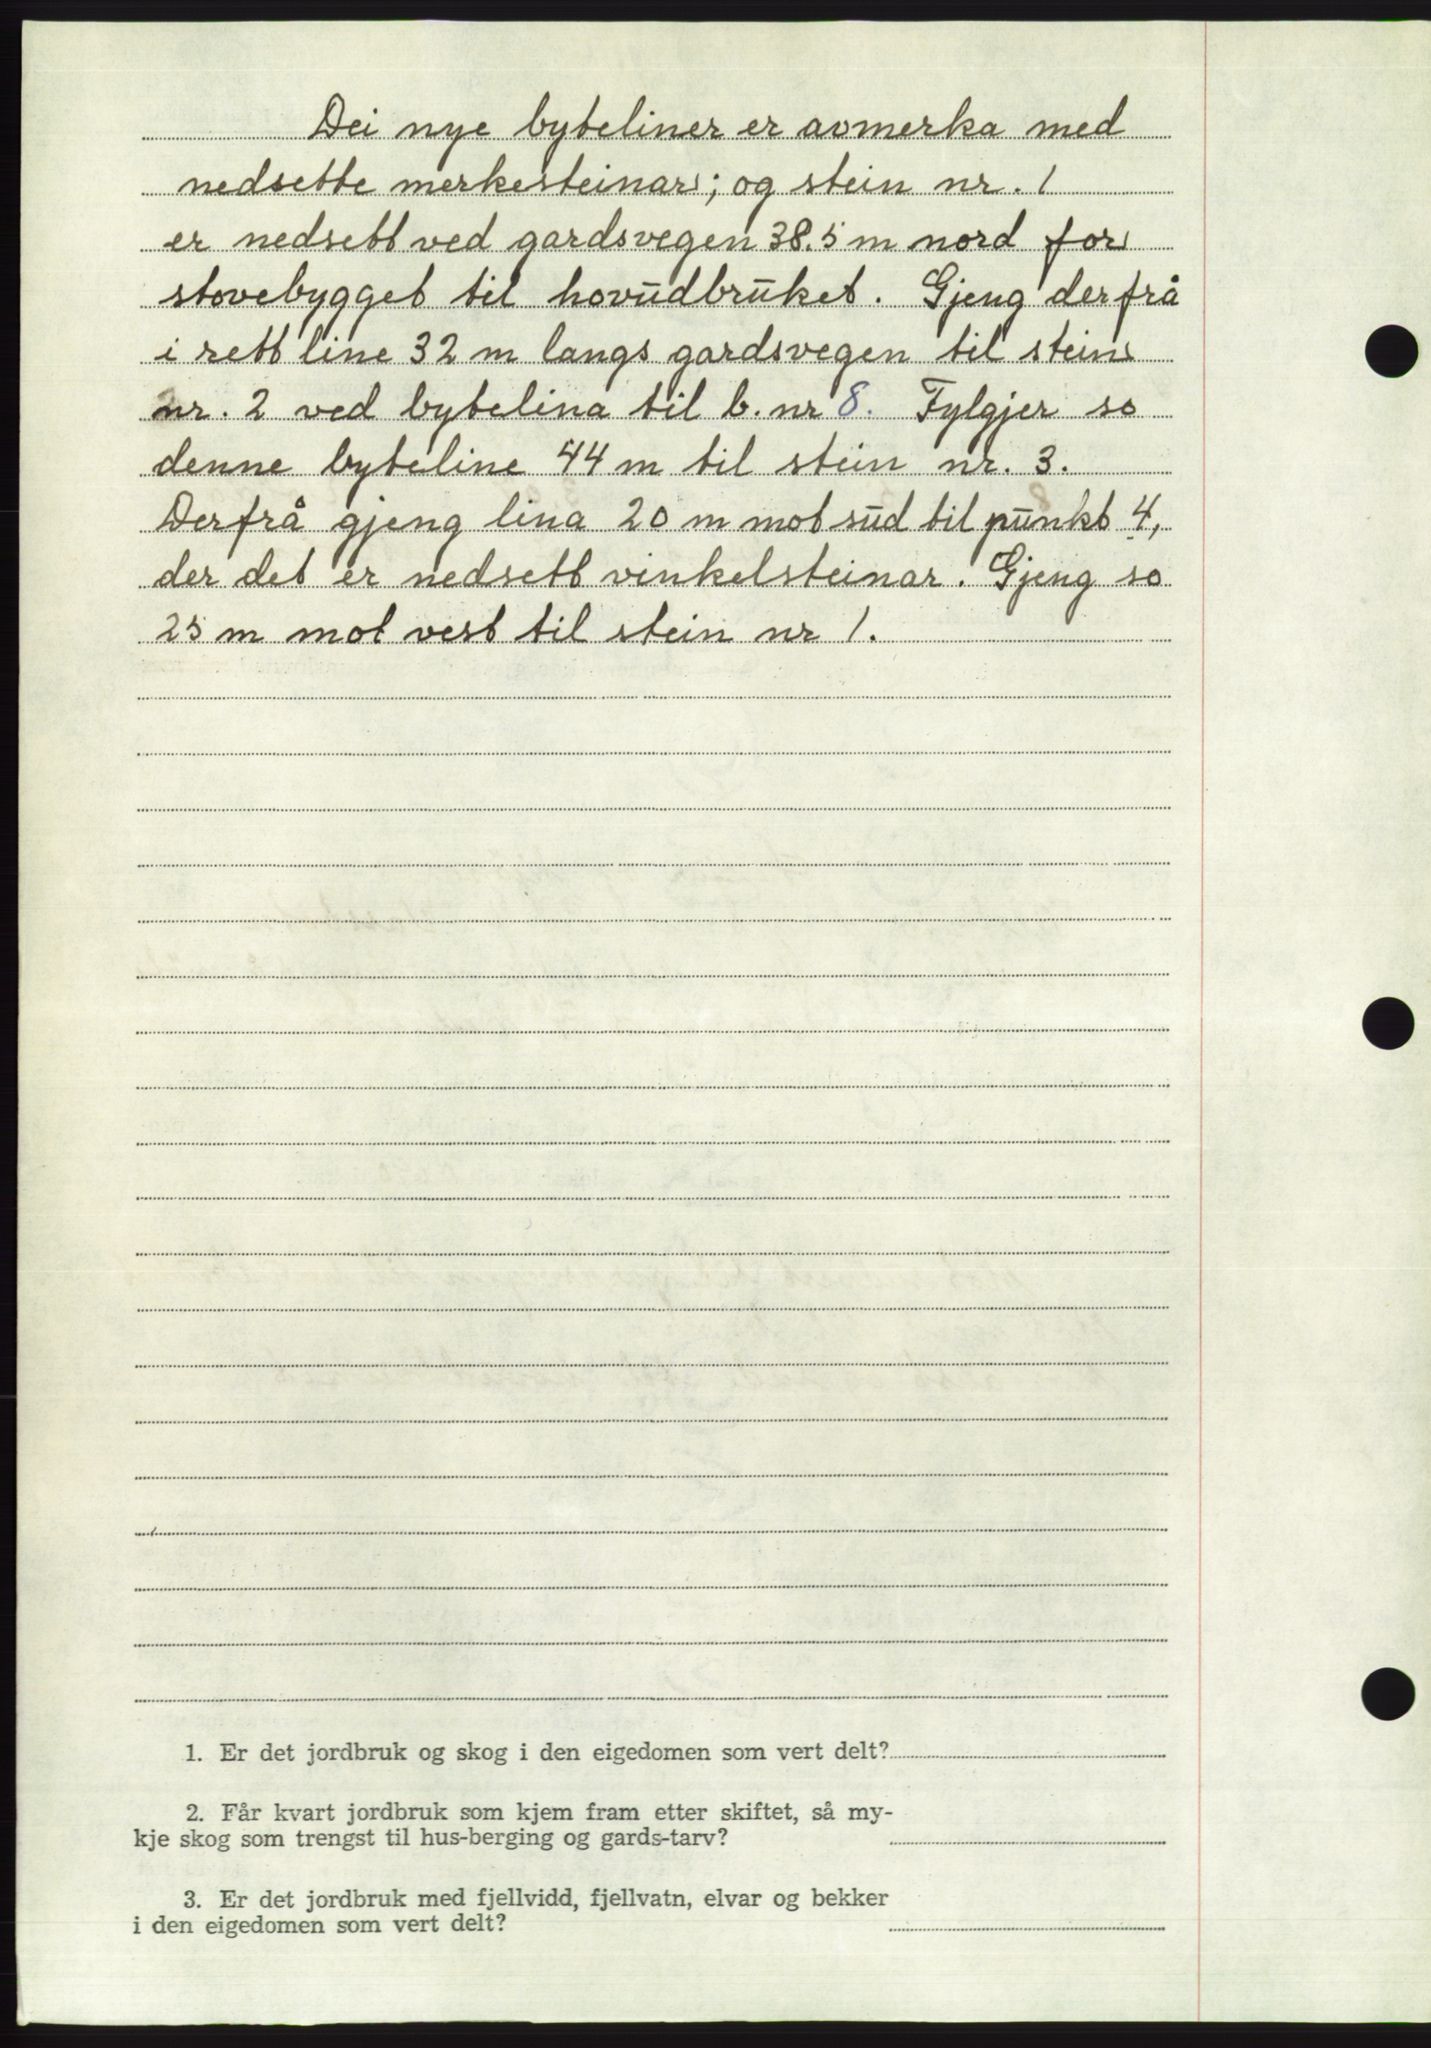 Dei nye byteliner er avmerka med
nedsette merkesteinar; og stein nr. 1
er nedsett ved gardsvegen 38.5 m nord for
stovebygget til hovudbruket. Gjeng derfrå
i rett line 32 m langs gardsvegen til stein
nr. 2 ved bytelina til b. nr 8. Fylgjer so
denne byteline 44 m til stein nr. 3.
Derfrå gjeng lina 20 m mot sud til punkt 4,
der det er nedsett vinkelsteinar. Gjeng so
25 m mot vest til stein nr 1.
1. Er det jordbruk og skog i den eigedomen som vert delt?
2. Får kvart jordbruk som kjem fram etter skiftet, så my-
kje skog som trengst til hus-berging og gards-tarv?
3. Er det jordbruk med fjellvidd, fjellvatn, elvar og bekker
i den eigedomen som vert delt?